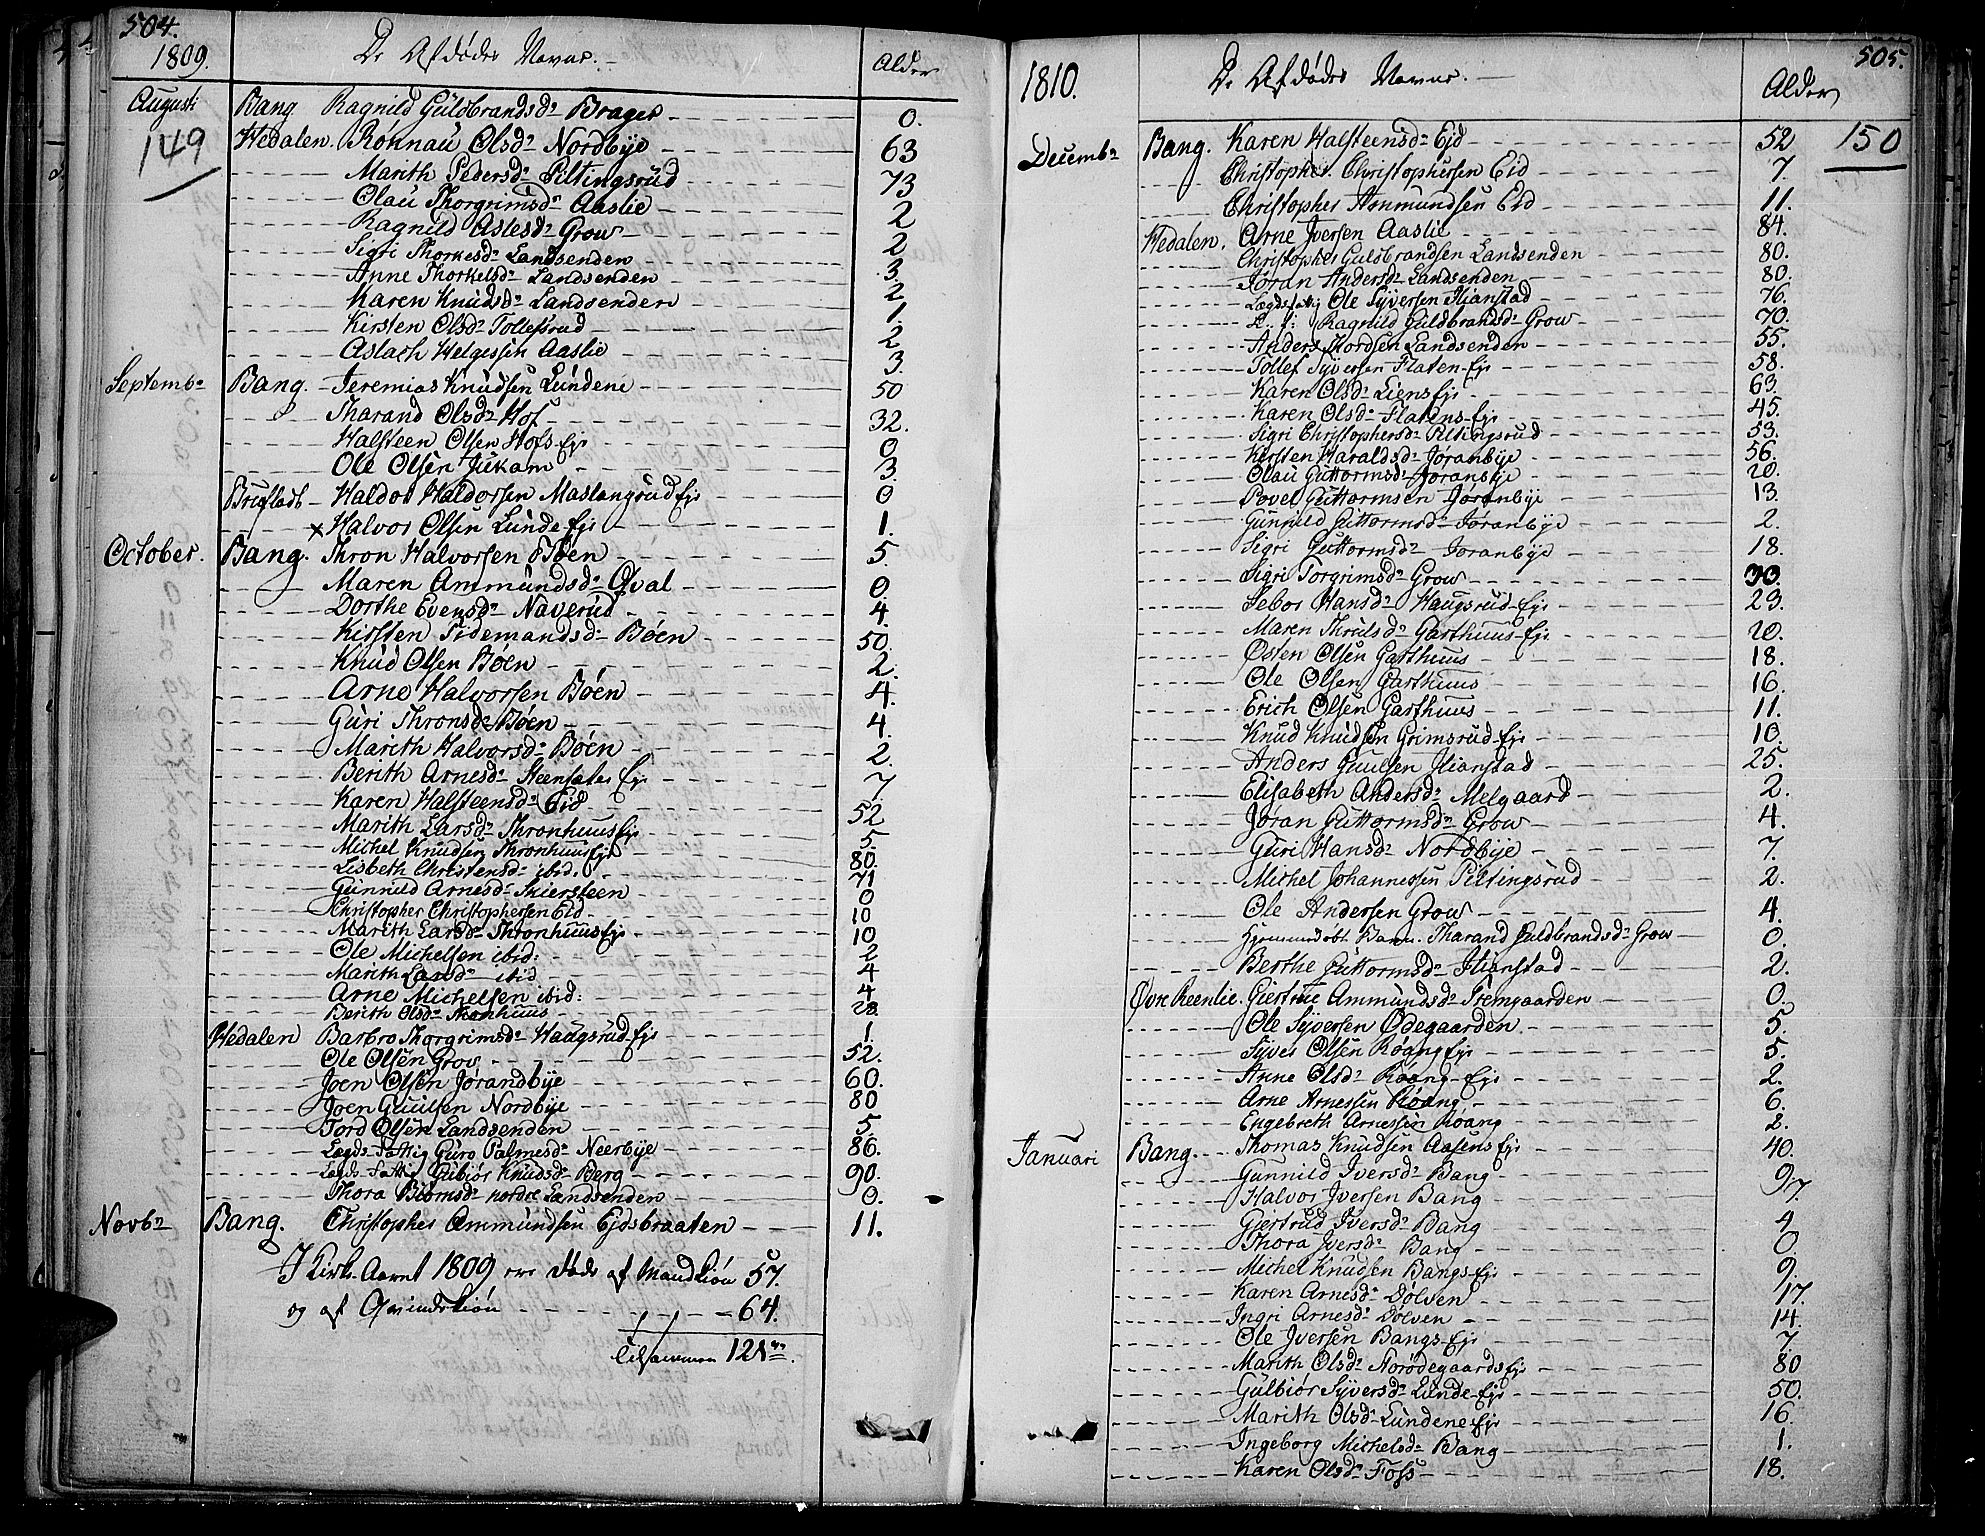 504.
1809. De Afdødes Navne. Alder
Augusti Bang Ragnild Guldbrandsdr Brager 0.
149
Hedalen. Rønnau Olsdr Nordbÿe 63
Marith Pedersdr Piltingsrud 73
Olau Thorgrimsdr Aaslie 2
Ragnild Aslesdr Grow 2
Sigri Thorkesdr Landsenden 3
Anne Thorkelsdr Landsenden 2
Karen Knudsdr Landsenden 1.
Kirsten Olsdr Tollefsrud 2
Aslach Helgessen Aaslie 3.
Septembr Bang. Jeremias Knudsen Lundene 50
Tharand Olsdr Hof 32.
Halsteen Olsen Hofs Eje 0
Ole Olsen Jukam 3.
Brufladt Haldor Haldorsen Maslangrud Eje 0
x Halvor Olsen Lunde Eje 1.
October. Bang. Thron Halvorsen Bøen 5.
Maren Ammundsdr Qval 0.
Dorthe Evensdr Naverud 4.
Kirsten Tidemandsdr Bøen 50.
Knud Olsen Bøen 2.
Arne Halvorsen Bøen 4.
Guri Thronsdr Bøen 4.
Marith Halvorsdr Bøen 2.
Berith Arnesdr Steensæter Eje 7.
Karen Halsteensdr Eid 52
Marith Larsdr Thronhuus Eje 5.
Michel Knudsen Thronhuus Eje 80.
Lisbeth Christensdr ibid. 71
Gunnild Arnesdr Skiersteen 0
Christopher Christophersen Eid 10
Marith Larsdr Thronhuus Eje 10
Ole Michelsen ibid: 2
Marith Larsdr ibid 4
Arne Michelsen ibid: 4
Berith Olsdr Thronhuus
Hedalen Barbro Thorgrimsdr Haugsrud Eje 1.
Ole Olsen Grov 52.
Joen Olsen Jørandbÿe 60.
Joen Guulsen Nordbÿe 80
Tord Olsen Landsenden 5.
Lægds-Fattig Guro Palmesdr Neerbÿe 86.
Lægds-Fattig Gulbiør Knudsdr Berg 90.
Thora Biømsdr nordre Landsenden 0.
Novbr Bang. Christopher Ammundsen Ejdsbraaten 11.
I Kirke-Aaret 1809 ere døde af Mandkiøn 57.
og af Qvindekiøn 64.
tilsammen 121
505.
1810. De Afdødes Navne. Alder
150
Decembr Bang. Karen Halsteensdr Ejd 52
Christopher Christophersen Eid 7.
Christopher Ammundsen Eid 11.
Hedalen. Arne Iversen Aaslie 84.
Christopher Guldbrandsen Landsenden 80.
Jøran Andersdr Landsenden 80.
Lægdsfattig Ole Syversen Ilianstad 76.
L. f: Ragnild Guldbrandsdr Grow 70.
Anders Thordsen Landsenden 55.
Tollef Syversen Flaten-Eje 58.
Karen Olsdr Liens Eje 63.
Karen Olsdr Flatens Eje 45.
Sigri Christophersdr Piltingsrud 53.
Kirsten Haraldsdr Jøranbÿe 56.
Olau Guttormsdr Jøranbÿe 20.
Povel Guttormsen Jøranbÿe 13.
Gunnild Guttormsdr Jøranbÿe 2.
Sigri Guttormsdr Jøranbÿe 18.
Sigri Torgrimsdr Grow
Sebor Hansdr Haugsrud-Eje 23.
Maren Thrulsdr Garthuus-Eje 20.
Østen Olsen Garthuus 18.
Ole Olsen Garthuus 16.
Erich Olsen Garthuus 11.
Knud Knudsen Grimsrud-Eje 10.
Anders Guulsen Ilianstad 25.
Elisabeth Andersdr Melgaard 2.
Jøran Guttormsdr Grow 4.
Guri Hansdr Nordbÿe 7.
Michel Johannessen Piltingsrud 2.
Ole Andersen Grow 4.
Hjemmedøbt Barn. Tharand Guldbrandsdr Grow 0.
Berthe Guttormsdr Ilianstad 2.
Øvre Reenlie. Giertrue Ammundsdr Fremgaarden 0.
Ole Syversen Ødegaarden 5.
Syver Olsen Røang Eje 5.
Anne Olsdr Røang-Eje 2.
Arne Arnessen Røang 6.
Engebreth Arnessen Røang 2.
Januari Bang. Thomas Knudsen Aasens Eje 40.
Gunnild Iversdr Bang 9
Halvor Iversen Bang 7.
Giertrud Iversdr Bang 4
Thora Iversdr Bang 0.
Michel Knudsen Bangs-Eje 9.
Karen Arnesdr Dølven 17.
Ingri Arnesdr Dølven 14.
Ole Iversen Bangs-Eje 7.
Marith Olsdr Norødegaards Eje 80
Gulbiør Syversdr Lunde-Eje 50.
Marith Olsdr Lundene-Eje 16.
Ingeborg Michelsdr Bang 1.
Karen Olsdr Foss 18.